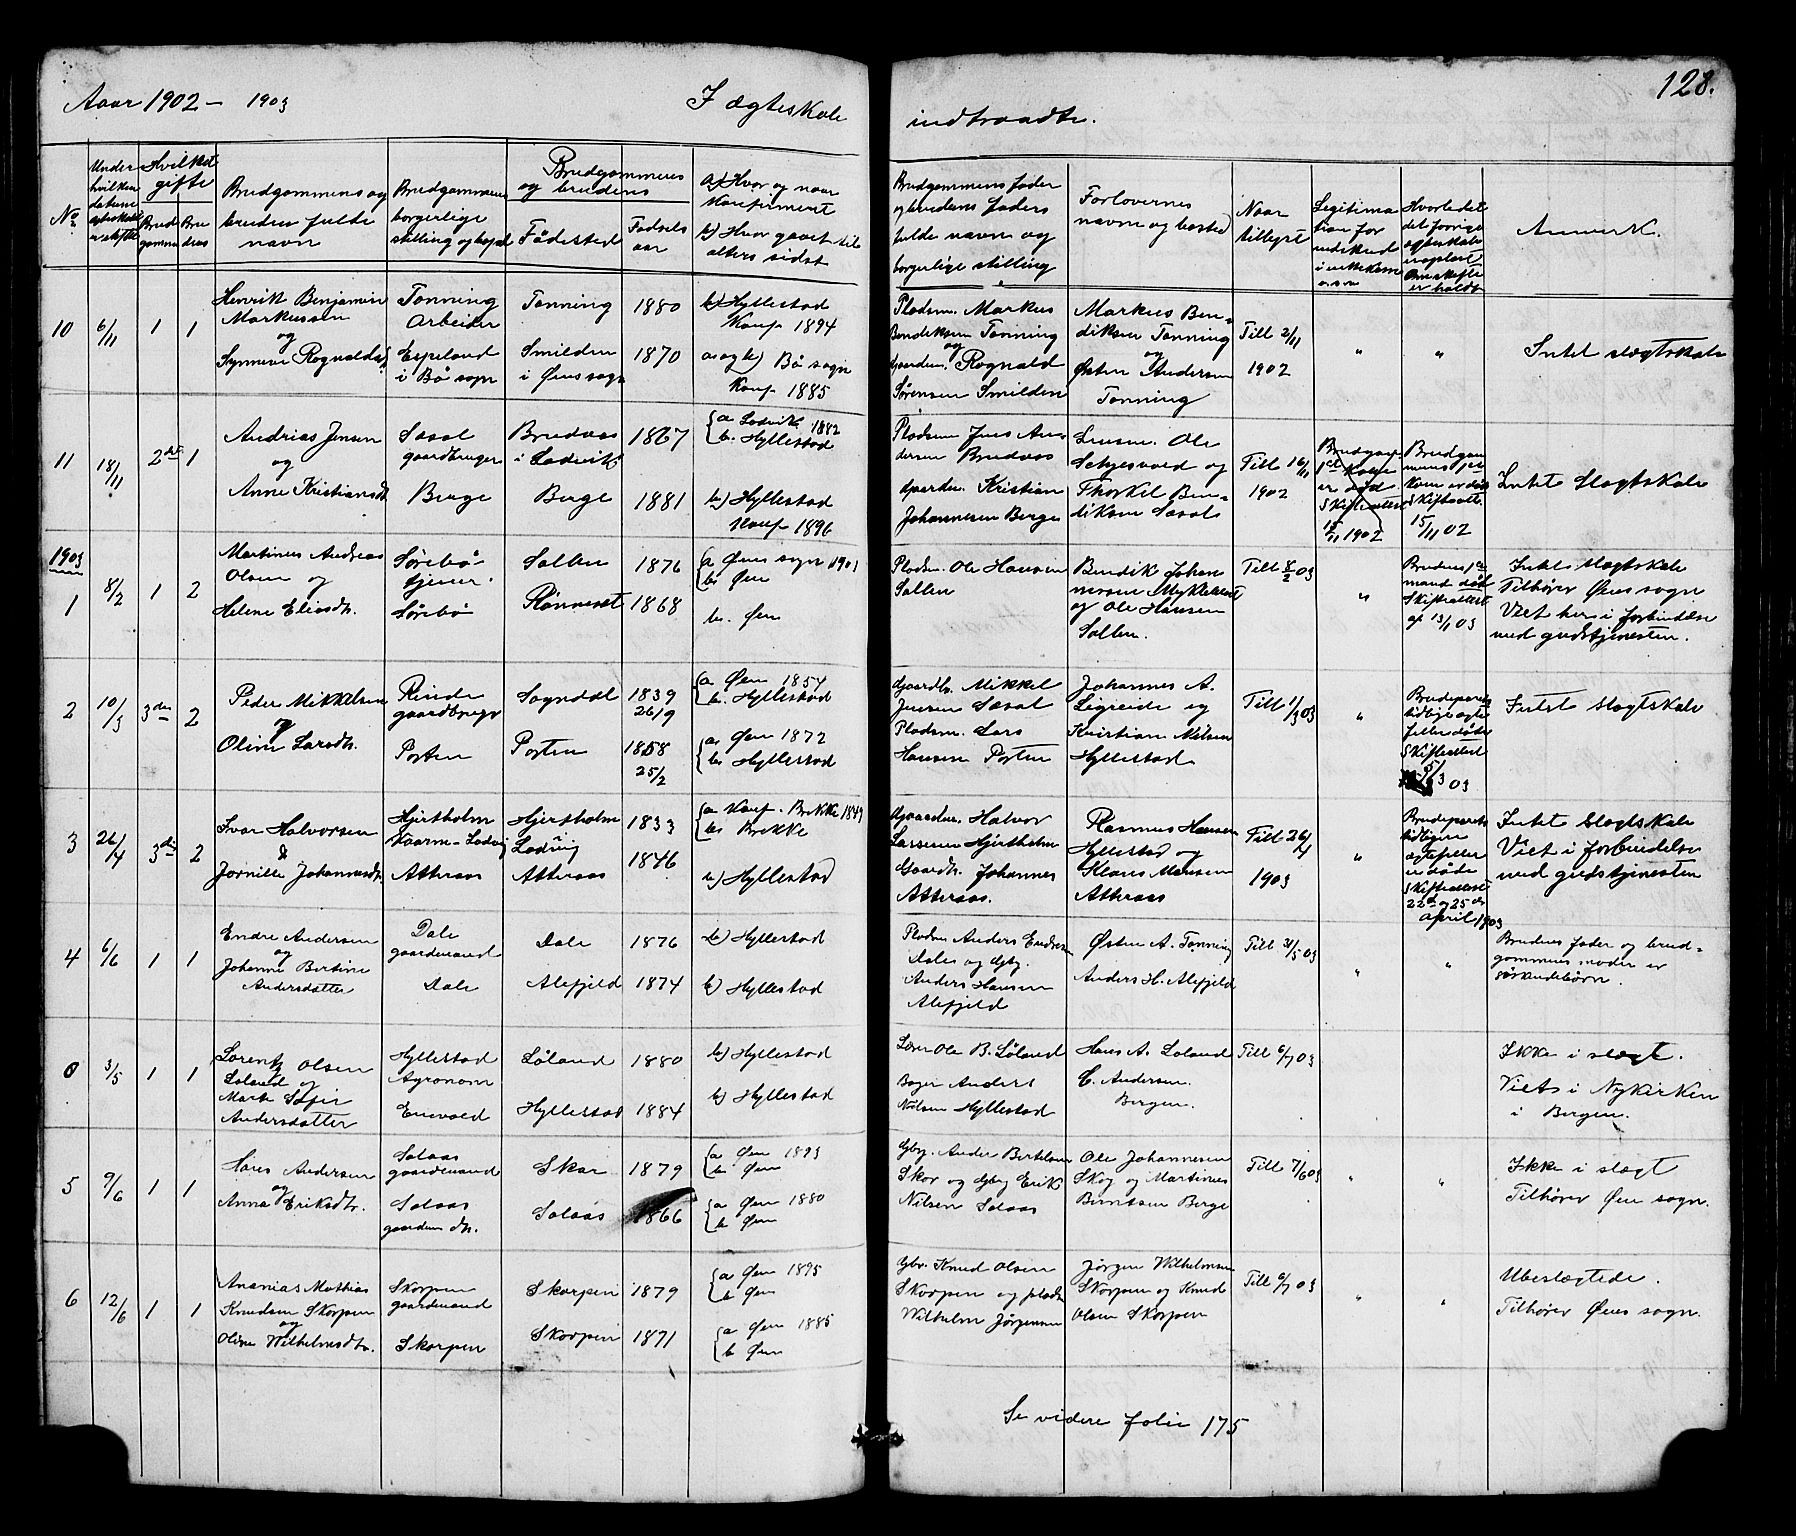 Aaar 1902 - 1903
I ægteskab
indtraadte.
128.
No
Under hvilken datum ægteskabet er stiftet
Hvilket gifte
Brudgommens
Brudens
Brudgommens og brudens fulde navn
Brudgommens borgerlige stilling og bopæl
Brudgommens og brudens
Födested
Födselsaar
a) Hvor og naar konfirmeret
b) Hvor gaaet til alters sidst
Brudgommens fader og brudens faders fulde navn og borgerlige stilling
Forlovernes navne og bosted
Naar tillyst
Hvorledes det forrige ægteskab er oplöst Om skifte er holdt
Anmærk.
10
6/11
1
1
Henrik Benjamin
Markussen
og
Synneve Rognaldsd.
Tonning
Arbeider
Espeland
i Bö sogn
Tonning
Smilden
i Øens sogn
1880
1870
b) Hyllestad
Konf. 1894
a og b) Bö sogn
Konf. 1885
Pladsm. Markus
Bendiksen Tonning
og
Gaardm. Rognald
Sörensen Smilden
Markus Ben-
diksen Tonning
og
Østen Andersen
Tonning
Till 2/11
1902
"
"
Intet slægtskab
11
18/11
2det
1
Andrias Jensen
og
Anne Kristiansdt.
Sæsol
gaardbruger
Berge
Bredvas
i Ladvik
Berge
1867
1881
a Ladvik 1882
b. Hyllestad
b) Hyllestad
Konf. 1896
Pladsm Jens An-
dersen Bredvas
Gaardm. Kristian
Johannesen Berge
Lensm. Ole
Setjesvold og
Thorkel Ben-
diksen Sæsol
Till 16/11
1902
Brudgom.
1ste kone
er død
Skifteattest
15/11 1902
Brudgom
mens 1ste
kone er död
Skifteatt.
15/11 02
Intet Slægtskab
1903
1
8/2
1
2
Martinus Andreas
Olsen og
Helene Eliasdt.
Sörebö
tjener.
Sörebö
Sollen
Rönneset
1876
1868
a Øens sogn 1901
b. Øen
b. Øen
Pladsm. Ole Hansen
Sollen
Bendik Johan
nessen Myklebust
og Ole Hansen
Sollen.
Till 8/2 03
"
Brudens 1ste
mand död
Skifteattest
af 13/1 03
Intet slægtskab
Tilhörer Øens sogn
Viet her i forbindelse
med gudstjenesten.
2
10/3
3die
2
Peder Mikkelsen
og
Oline Larsdt.
Rinde
gaardbrugr
Porten
Sogndal
Porten
1839
26/9
1858
25/2
a Øen 1854
b. Hyllestad
a. Øen 1872
b. Hyllestad
Gaardb. Mikkel
Jensen Sæsol
Pladsm. Lars
Hansen Porten
Johannes A.
Ligreide og
Kristian Nilsen
Hyllestad
Till 1/3 03
"
Brudeparets
tidligere ægte
feller döde
Skifteattest
5/3 03
Intet slægtskab
3
26/4
3die
2
Ivar Halvorsen
&
Jörnille Johannesdt.
Hjertholm
Kaarm. Ladvig
Atteraas
Hjertholm
Ladvig
Atteraas
1833
1846
a Konf. Brekke 1849
b. Brekke
b) Hyllestad
Gaardm. Halvor
Larssen Hjertholm
Gaardb. Johannes
Atteraas.
Rasmus Hansen
Hyllestad og
Klaus Monsen
Atteraas
Till 26/4
1903
"
Brudeparets
tidligere
ægtefeller
er döde
Skifteattest
22de og 25de
april 1903
Intet Slægtskab
Viet i forbindelse
med gudstjenesten
4
6/6
1
1
Endre Andersen
og
Johanne Bertine
Andersdatter
Dale
gaardmand
Dale
Dale
Alefjeld
1876
1874
b) Hyllestad
b) Hyllestad
Pladsm Anders Endresen
Dale og Gbg.
Anders Hansen
Alefjeld
Østen A. Tonning
Anders H. Alefjeld
Till 31/5 03
"
"
Brudens fader og brud-
gommens moder er
söskendebörn.
0
3/5
1
1
Lorentz Olsen
Löland og
Marte Sofie
Andersdatter
Hyllestad
Agronom
Enevold
Löland
Hyllestad
1880
1884
b) Hyllestad
b) Hyllestad
Lærer Ole B. Löland
Bager Anders
Nilsen Hyllestad
Hans A. Loland
C. Andersen.
Bergen.
Till 6/7 03
Ikke i slægt.
Viet i Nykirken
i Bergen.
5
9/6
1
1
Hans Andersen
og
Anna Eriksdtr.
Solaas
gaardmand
Solaas
gaardm dtr.
Skor
Solaas
1879
1866
a Øen 1893
b Øen
a Øen 1880
b Øen
Gbg. Anders Bertelsen
Skor og Gbg Erik
Nilsen Solaas
Ole Johannesen
Skog og Martinus
Berntsen Berge
Till 7/6 03
"
"
Ikke i slægt
Tilhörer Øen sogn.
6
12/6
1
1
Ananias Mathias
Knudsen Skorpen
og
Oline Wilhelmsdtr.
Skorpen
gaardmand
Skorpen
Skorpen
Skorpen
1879
1871
a Øen 1895
b Øen
a Øen 1885
b Øen
Gbr. Knud Olsen
Skorpen og pladsm
Wilhelm Jörgensen
Jörgen Wilhelmsen
Skorpen og Knud
Olsen Skorpen
Till 6/7 03
"
"
Ubeslægtede.
Tilhörer Øens sogn.
Se videre folie 175